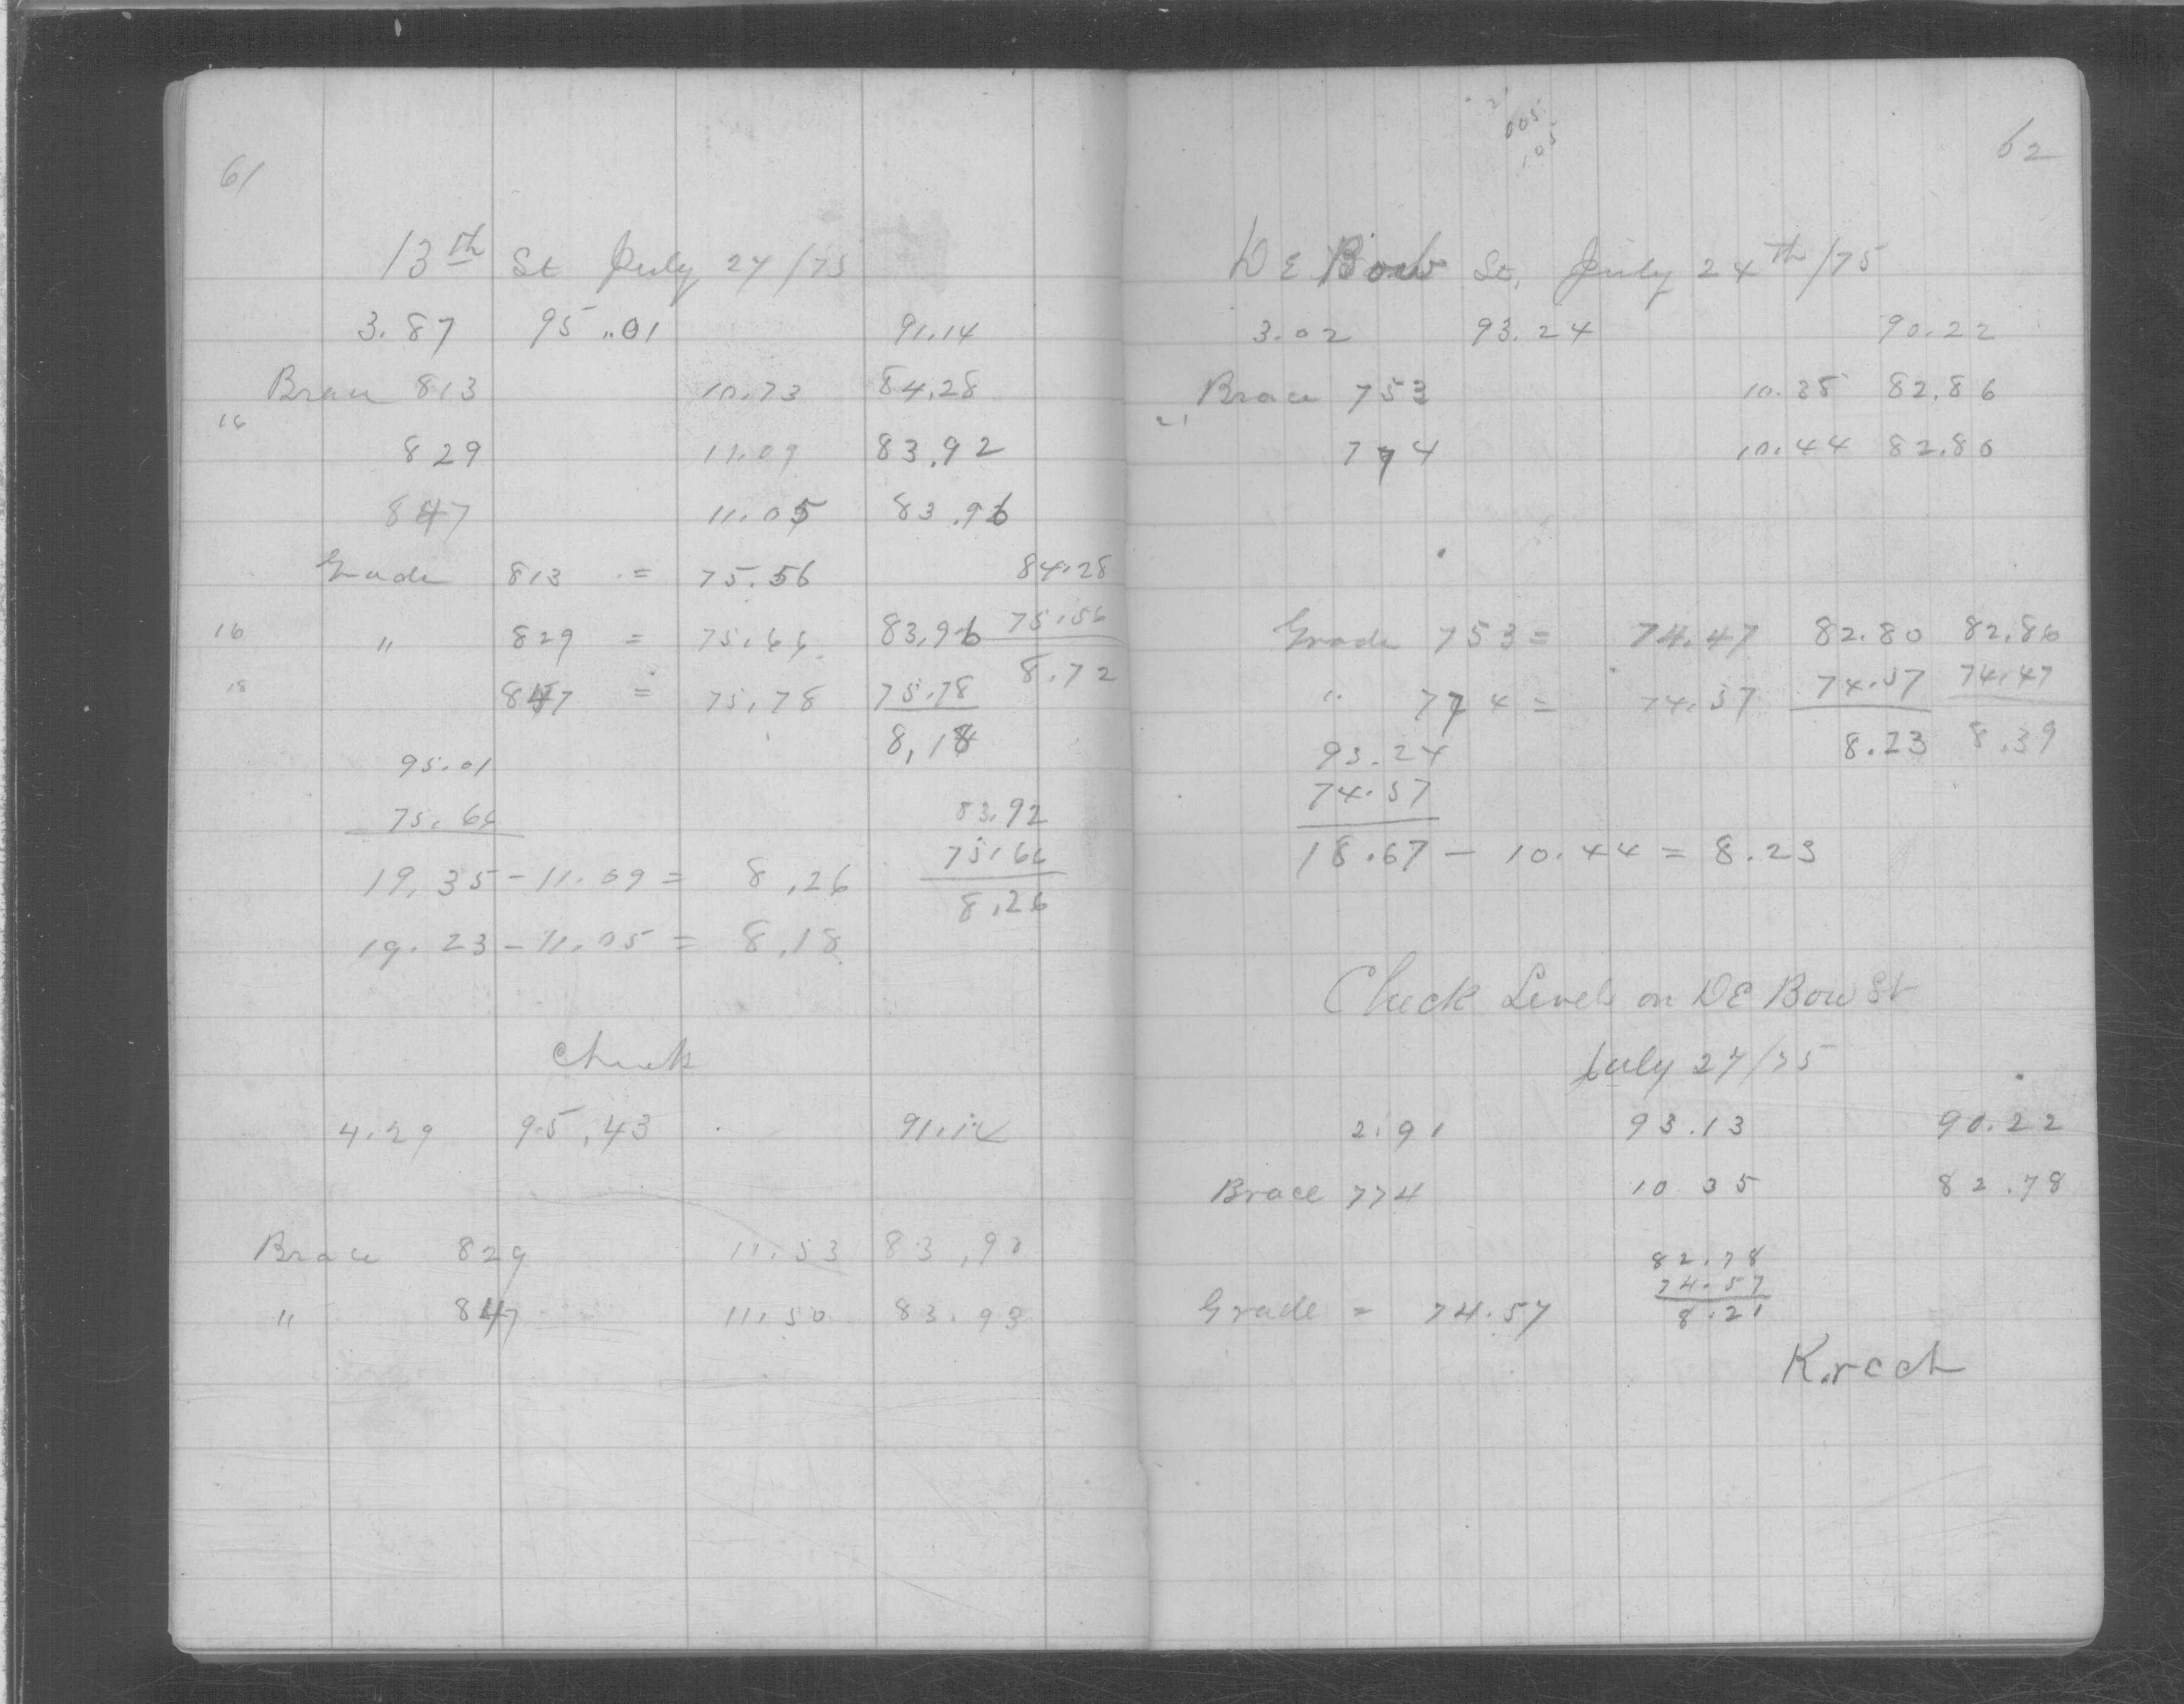 61
13th St July 27/75
3.87 95.01 91.14
Brace 813 10.73 84.28
16
829 11.09 83.92
847 11.05 83.96
Grade 813 = 75.56 84.28
16 " 829 = 75.66 83.96 75.56
18 847 = 75.78 75.78 8.72
8,18
95.01
75.66 83.92
19,35 - 11.09 = 8,26 75.66
8,26
19.23 - 11.05 = 8,18
Check
4.29 95,43 91.14
Brace 829 11.53 83,90
" 847 11.50 83.93
62
005
.105
DE Bow St, July 24th/75
3.02 93.24 90.22
Brace 753 10.38 82.86
21
774 10.44 82.80
Grade 753 = 74.47 82.80 82.86
" 774 = 74.57 74.57 74.47
93.24 8.23 8.39
74.57
18.67 - 10.44 = 8.23
Check Levels on DE Bow St
July 27/75
2.91 93.13 90.22
Brace 774 10 35 82.78
82.78
74.57
Grade = 74.57 8.21